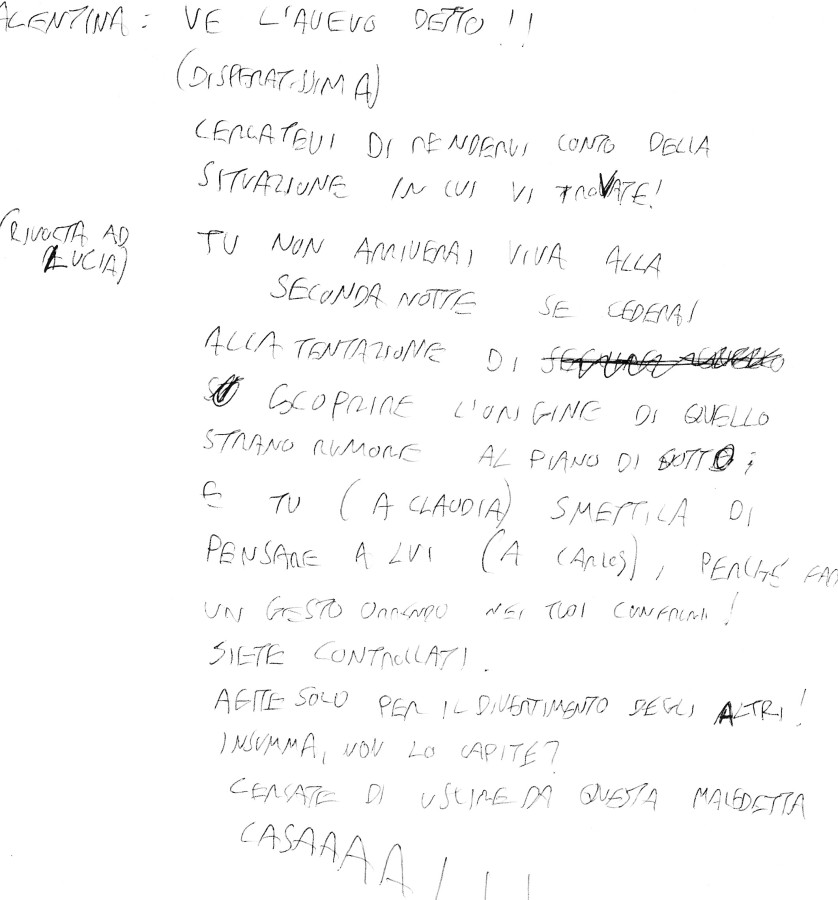 ALENTINA: VE L'AVEVO DETTO!!
(DISPERATISSIMA)
CERCATEVI DI RENDERVI CONTO DELLA
SITUAZIONE IN CUI VI TROVATE!
(RIVOLTA AD
LUCIA)
TU NON ARRIVERAI VIVA ALLA
SECONDA NOTTE SE CEDERAI
ALLA TENTAZIONE DI
SCOPRIRE L'ORIGINE DI QUELLO
STRANO RUMORE AL PIANO DI SOTTO;
E TU (A CLAUDIA) SMETTILA DI
PENSARE A LUI (A CARLOS), PERCHÉ FAR
UN GESTO ORRENDO NEI TUOI CONFRONI!
SIETE CONTROLLATI.
AGITE SOLO PER IL DIVERTIMENTO DEGLI ALTRI!
INSOMMA, NON LO CAPITE?
CERCATE DI USCIRE DA QUESTA MALEDETTA
CASAAAA!!!